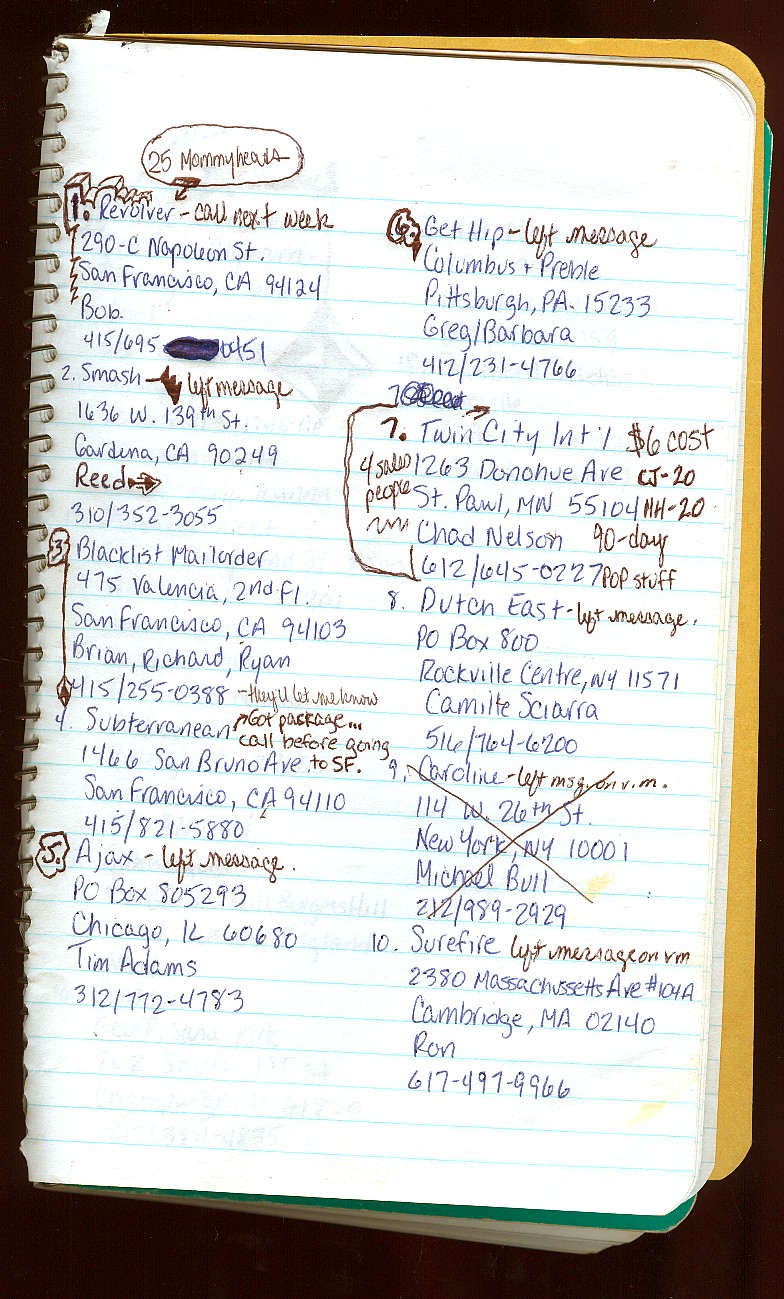 25 Mommyheads
1. Revolver - call next week
290-C Napoleon St.
San Francisco, CA 94124
Bob
415/695 0451
2. Smash - left message
1636 W. 139th St.
Gardena, CA 90249
Reed
310/352-3055
3 Blacklist Mailorder
475 Valencia, 2nd Fl.
San Francisco, CA 94103
Brian, Richard, Ryan
415/255-0388 - they'll let me know
4. Subterranean Got package...
call before going
to SF.
1466 San Bruno Ave.
San Francisco, CA 94110
415/821-5880
5. Ajax - left message.
PO Box 805293
Chicago, IL 60680
Tim Adams
312/772-4783
6. Get Hip - left message
Columbus + Preble
Pittsburgh, PA. 15233
Greg/Barbara
412/231-4766
7. Twin City Int'l $6 cost
4 sales people
1263 Donohue Ave CJ-20
St. Pawl, MN 55104 HH-20
Chad Nelson 90-day
612/645-0227 POP stuff
8. Dutch East - left message.
PO Box 800
Rockville Centre, NY 11571
Camille Sciarra
516/764-6200
9. Caroline - left msg. on v.m.
114 W. 26th St.
New York, NY 10001
Michael Bull
212/989-2929
10. Surefire left message on vm
2380 Massachussetts Ave #104A
Cambridge, MA 02140
Ron
617-497-9966